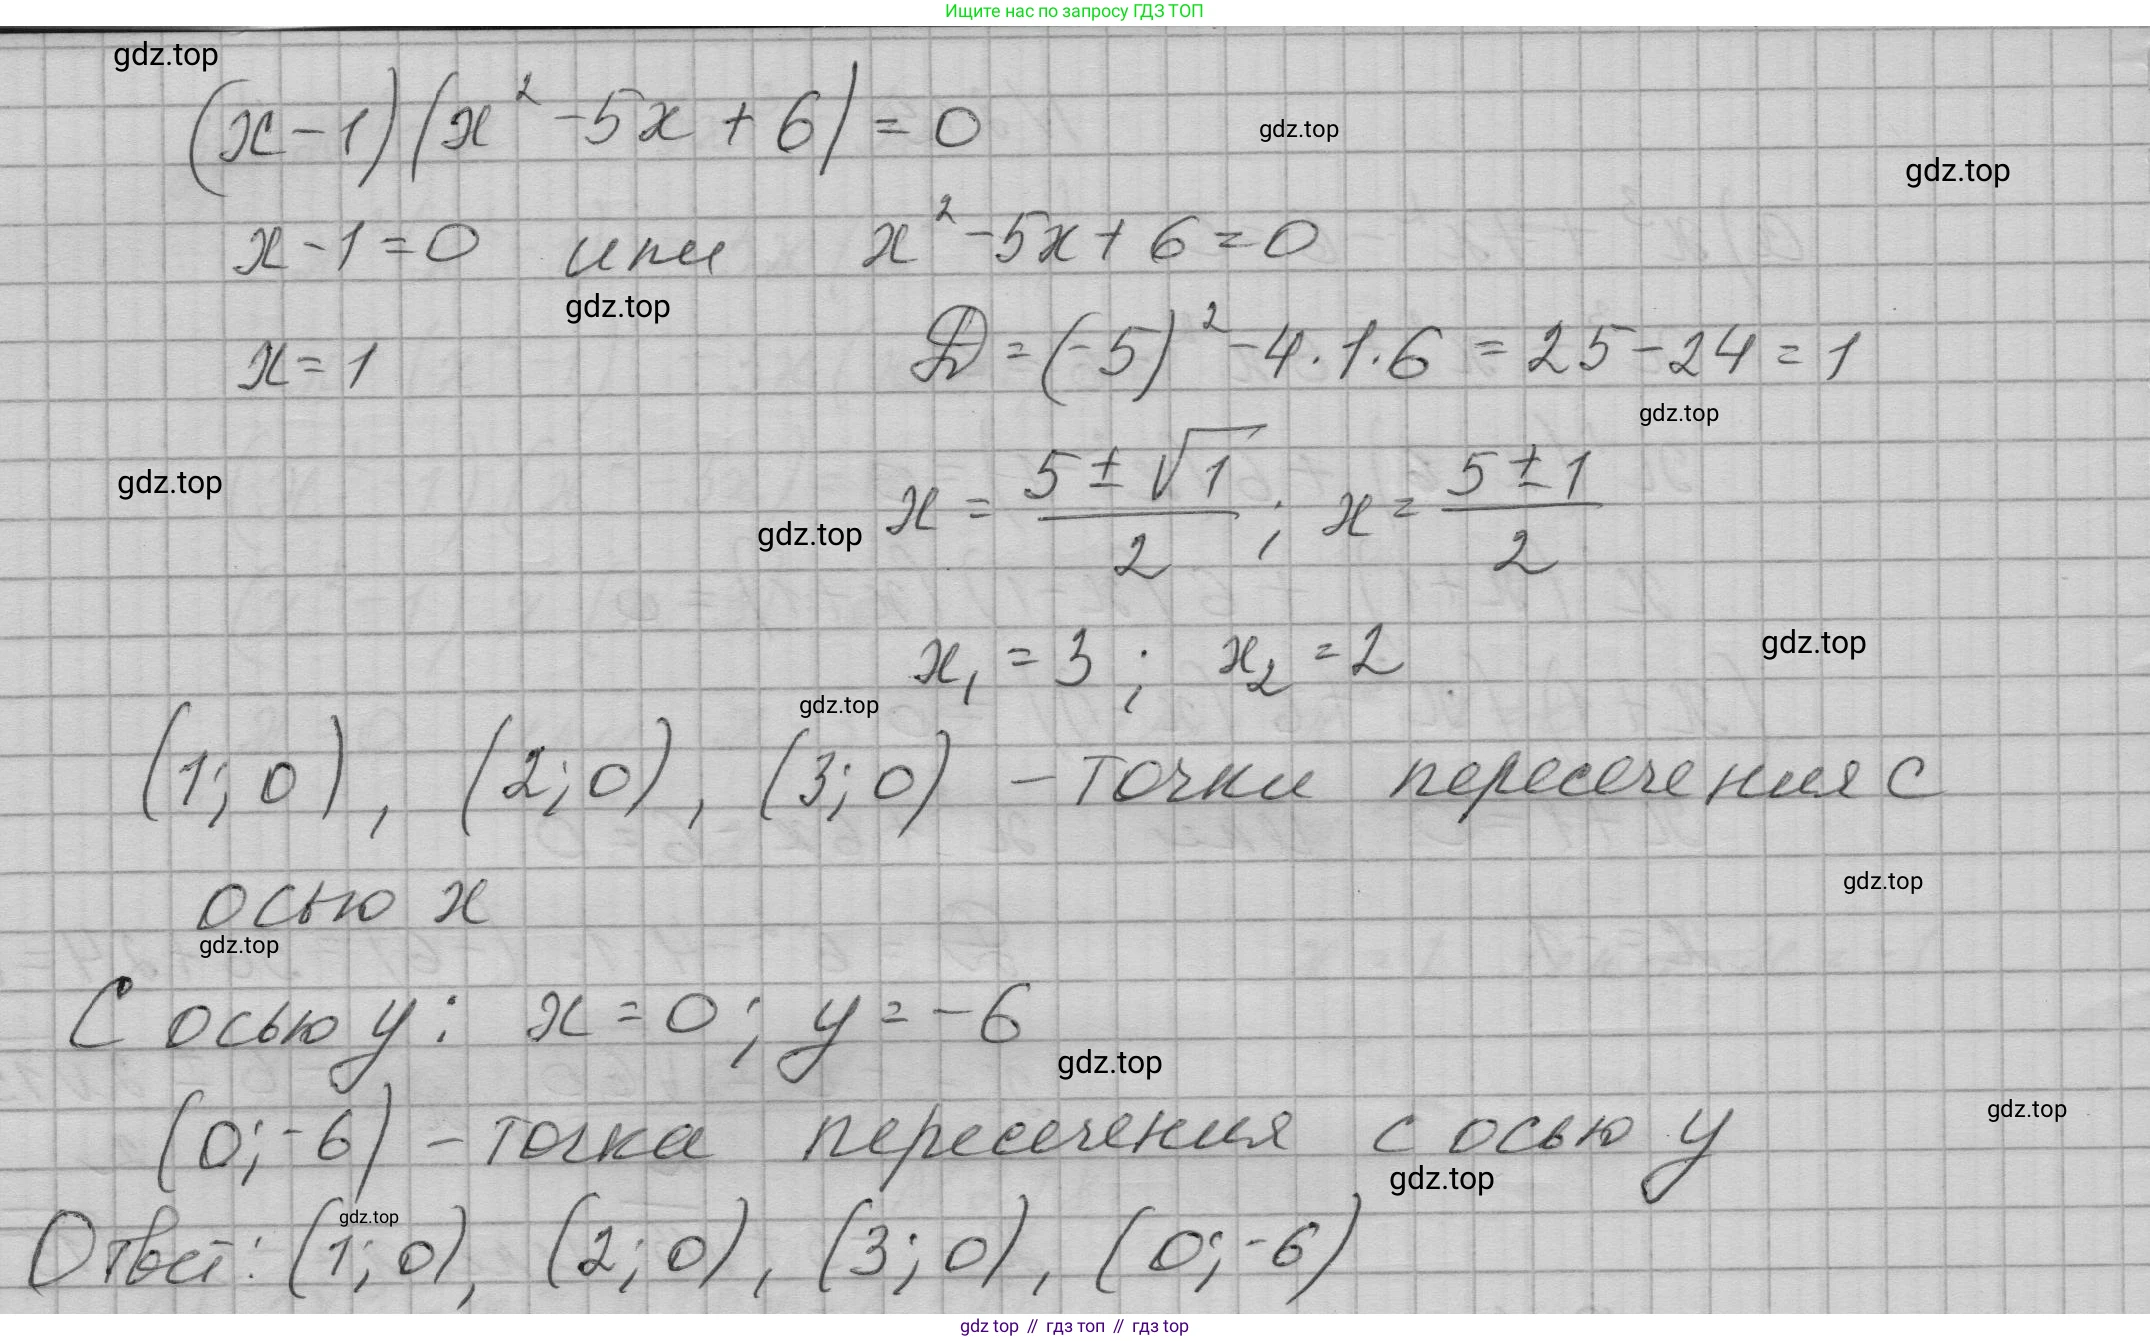 Ищите нас по запросу ГДЗ ТОП
gdz.top
(x-1)(x²-5x+6)=0
gdz.top
gdz.top
x-1=0 или x²-5x+6=0
gdz.top
x=1 D=(-5)²-4·1·6=25-24=1
gdz.top
gdz.top
x=(5±√1)/2; x=(5±1)/2
gdz.top
x₁=3; x₂=2
gdz.top
gdz.top
(1;0), (2;0), (3;0) - точки пересечения с
осью x
gdz.top
gdz.top
С осью y: x=0; y=-6
gdz.top
(0;-6) - точка пересечения с осью y
gdz.top
gdz.top
Ответ: (1;0), (2;0), (3;0), (0;-6)
gdz.top
gdz top // гдз топ // гдз top